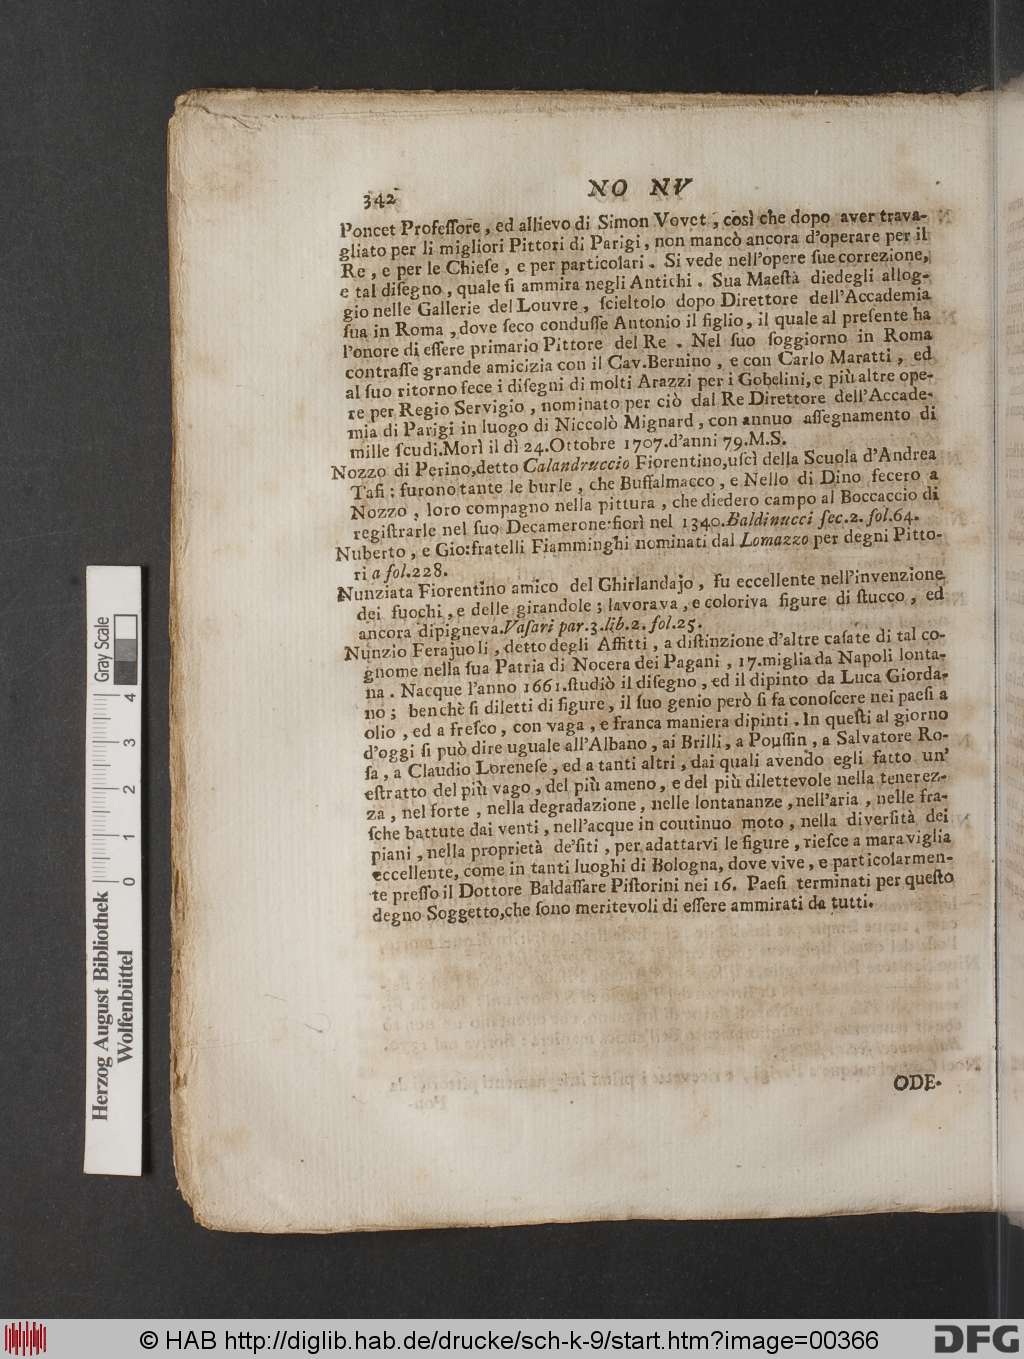 342 NO NV
Poncet Profeſſore, ed allievo di Simon Vovet, così che dopo aver trava-
gliato per li migliori Pittori di Parigi, non mancò ancora d'operare per il
Re, e per le Chieſe, e per particolari. Si vede nell'opere ſue correzione,
e tal diſegno, quale ſi ammira negli Antichi. Sua Maeſtà diedegli allog-
gio nelle Gallerie del Louvre, ſcieltolo dopo Direttore dell'Accademia
ſua in Roma, dove ſeco conduſſe Antonio il figlio, il quale al preſente ha
l'onore di eſſere primario Pittore del Re. Nel ſuo ſoggiorno in Roma
contraſſe grande amicizia con il Cav.Bernino, e con Carlo Maratti, ed
al ſuo ritorno fece i diſegni di molti Arazzi per i Gobelini, e più altre ope-
re per Regio Servigio, nominato per ciò dal Re Direttore dell'Accade-
mia di Parigi in luogo di Niccolò Mignard, con annuo aſſegnamento di
mille ſcudi.Morì il dì 24.Ottobre 1707.d'anni 79.M.S.
Nozzo di Perino,detto Calandruccio Fiorentino,uſcì della Scuola d'Andrea
Tafi: furono tante le burle, che Buffalmacco, e Nello di Dino fecero a
Nozzo, loro compagno nella pittura, che diedero campo al Boccaccio di
regiſtrarle nel ſuo Decamerone·fiorì nel 1340.Baldinucci ſec.2.fol.64.
Nuberto, e Gio:fratelli Fiamminghi nominati dal Lomazzo per degni Pitto-
ri a fol.228.
Nunziata Fiorentino amico del Ghirlandajo, fu eccellente nell'invenzione
dei fuochi, e delle girandole; lavorava, e coloriva figure di ſtucco, ed
ancora dipigneva.Vaſari par.3.lib.2.fol.25.
Nunzio Ferajuoli, detto degli Affitti, a diſtinzione d'altre caſate di tal co-
gnome nella ſua Patria di Nocera dei Pagani, 17.miglia da Napoli lonta-
na. Nacque l'anno 1661.ſtudiò il diſegno, ed il dipinto da Luca Giorda-
no; benchè ſi diletti di figure, il ſuo genio però ſi fa conoſcere nei paeſi a
olio, ed a freſco, con vaga, e franca maniera dipinti. In queſti al giorno
d'oggi ſi può dire uguale all'Albano, ai Brilli, a Pouſſin, a Salvatore Ro-
ſa, a Claudio Loreneſe, ed a tanti altri, dai quali avendo egli fatto un'
eſtratto del più vago, del più ameno, e del più dilettevole nella tenerez-
za, nel forte, nella degradazione, nelle lontananze, nell'aria, nelle fra-
ſche battute dai venti, nell'acque in coutinuo moto, nella diverſità dei
piani, nella proprietà de'ſiti, per adattarvi le figure, rieſce a maraviglia
eccellente, come in tanti luoghi di Bologna, dove vive, e particolarmen-
te preſſo il Dottore Baldaſſare Piſtorini nei 16. Paeſi terminati per queſto
degno Soggetto,che ſono meritevoli di eſſere ammirati da tutti.
ODE-
Herzog August Bibliothek
Wolfenbüttel
Gray Scale
0 1 2 3 4
© HAB http://diglib.hab.de/drucke/sch-k-9/start.htm?image=00366
DFG